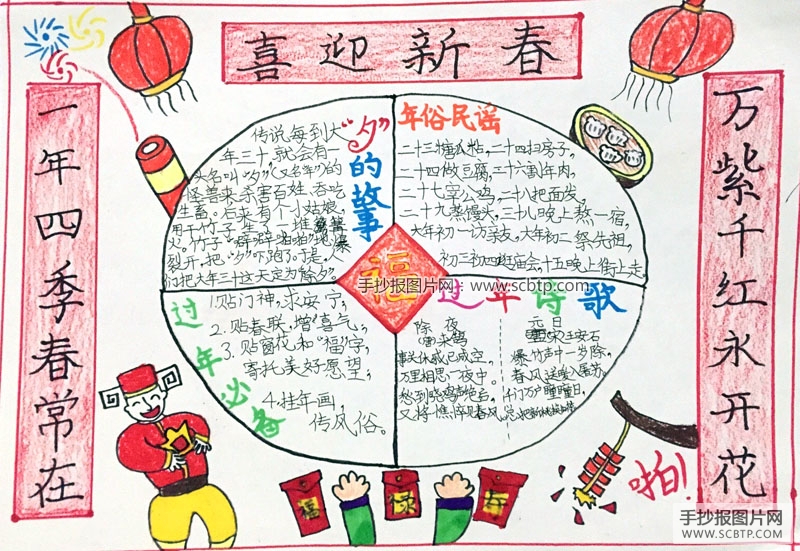 喜迎新春
一年四季春常在
万紫千红永开花
"夕"的故事
传说每到大
年三十,就会有一
头名叫"夕"(又名"年")的
怪兽来杀害百姓,吞吃
生畜。后来有个小姑娘,
用干竹子,生了一堆篝
火。竹子"噼噼啪啪"地爆
裂开,把"夕"下跑了。于是,人
们把大年三十这天定为除夕。
年俗民谣
二十三糖瓜粘,二十四扫房子,
二十四做豆腐,二十六割年肉,
二十七宰公鸡,二十八把面发,
二十九蒸馒头,三十儿晚上熬一宿,
大年初一访亲友,大年初二祭先祖,
初三初四逛庙会,十五晚上街上走。
福
手抄报图片网:www.scbtp.com
过年必备
1.贴门神,求安宁,
2.贴春联,增喜气,
3.贴窗花和"福"字,
寄托美好愿望;
4.挂年画,
传风俗。
过年诗歌
除夜
来鹄
事关休戚已成空,
万里相思一夜中。
愁到晓鸡声绝后,
又将憔悴见春风。
元日
宋王安石
爆竹声中一岁除,
春风送暖入屠苏。
千门万户曈曈日,
总把新桃换旧符。
福
啪!
手抄报图片网
WWW.SCBTP.COM